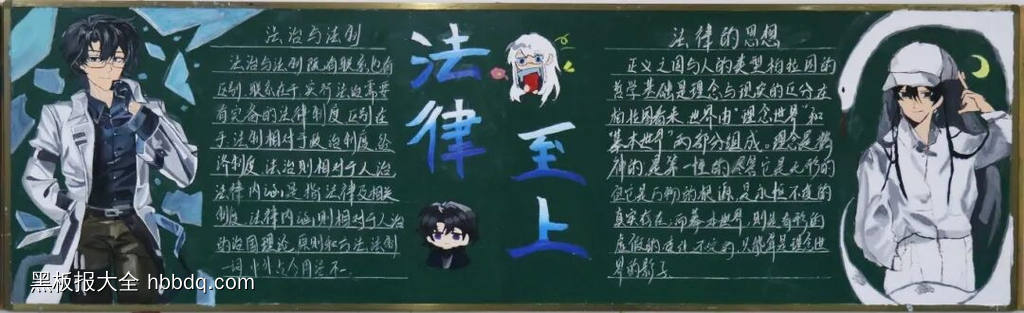 法治与法制
法治与法制既有联系也有
区别,联系在于实行法治需要
有完备的法律制度区别在
于,法制相对于政治制度、经
济制度,法治则相对于人治
法律内涵是指法律及相关
制度,法律内涵则相对于人治
的治国理论、原则和方法法制
一词
法律
至上
法律的思想
正义之国与人的类型柏拉图的
哲学基础是理念与现实的区分在
柏拉图看来,世界由“理念世界”和
“摹本世界”两部分组成。理念是精
神的,是第一性的,尽管它是无形的
但它是万物的根源,是永恒不变的
真实存在,而摹本世界,则是有形的
虚假的变化不定的,只能算是理念世
界的影子
黑板报大全 hbbdq.com